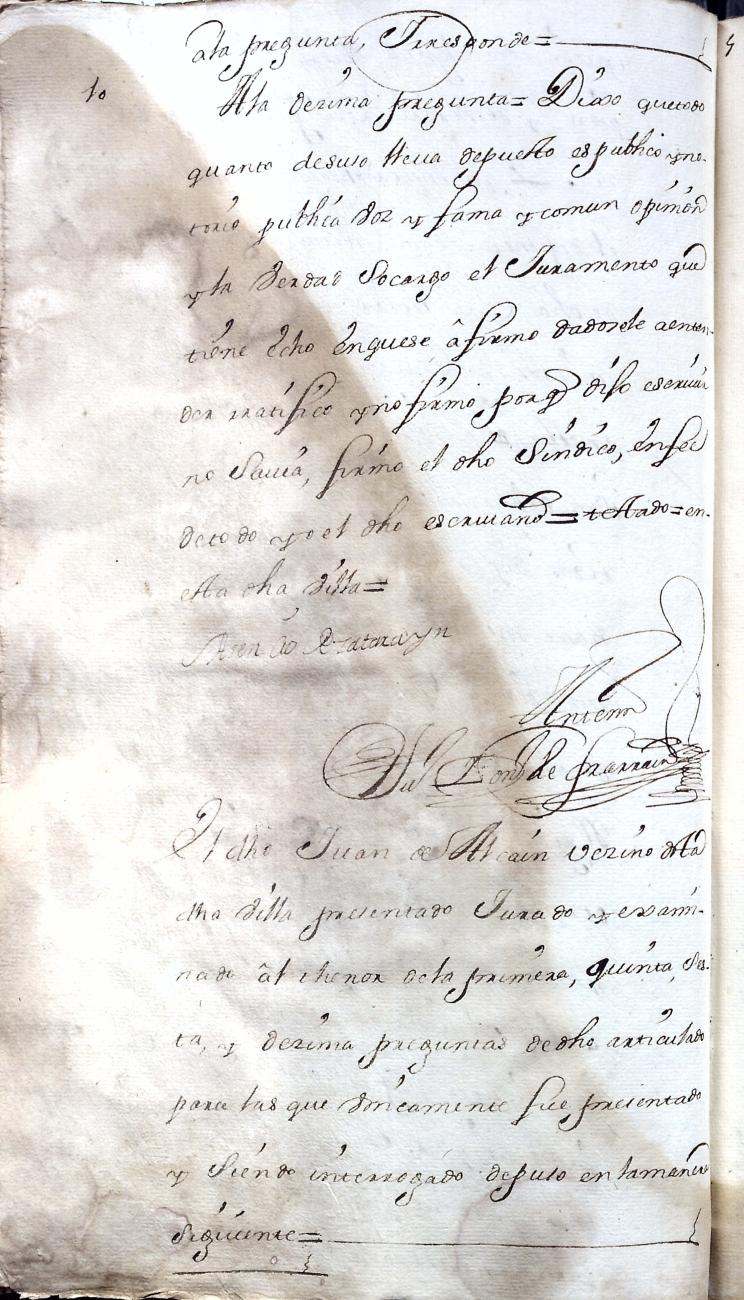 ala pregunta, Yresponde=
10 Ala dezima pregunta= Dixo que todo
quanto desuso lleva depuesto es publico y no-
torio publica voz y fama y comun opinion
y la verdad Socargo el Juramento que
tiene echo en quese afirmo dadosele aenten-
der rratifico y no firmo porq dijo escriuir
no Sauia, firmo el dho Sindico, en fee
de todo yo el dho escriuano= testado= en-
esta dha Villa=
Antemi
El dho Juan de Alcain vezino desta
dha Villa presentado Jurado y exami-
nado al thenor dela primera, quinta, Ses-
ta, y dezima preguntas de dho articulado
para las que Vnicamente fue presentado
y Siendo interrogado depuso en lamanera
Siguiente=